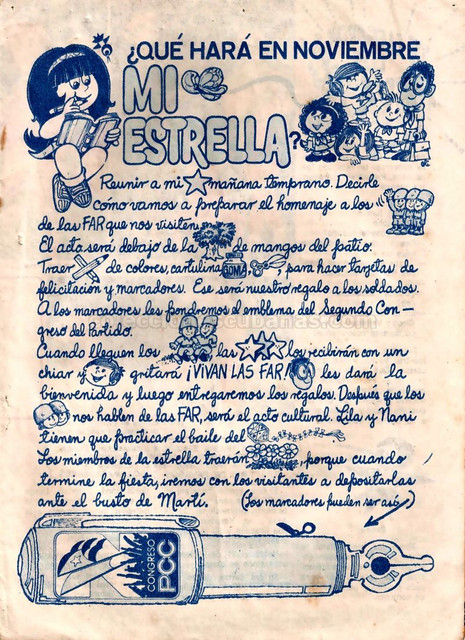 ¿QUÉ HARÁ EN NOVIEMBRE
MI
ESTRELLA?
Reunir a mi mañana temprano. Decirle
cómo vamos a preparar el homenaje a los
de las FAR que nos visiten.
El acto será debajo de la de mangos del patio.
Traer de colores, cartulina, GOMA, para hacer tarjetas de
felicitación y marcadores. Ese será nuestro regalo a los soldados.
A los marcadores les pondremos el emblema del Segundo Con-
greso del Partido.
Cuando lleguen los las los recibirán con un
chiar y gritará ¡VIVAN LAS FAR! les dará la
bienvenida y luego entregaremos los regalos. Después que los
nos hablen de las FAR, será el acto cultural. Lila y Nani
tienen que practicar el baile del
Los miembros de la estrella traerán, porque cuando
termine la fiesta, iremos con los visitantes a depositarlas
ante el busto de Martí. (Los marcadores pueden ser así)
CONGRESO
PCC